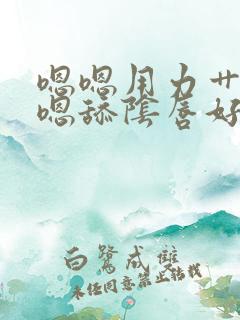 嗯嗯用力艹
嗯舔陰唇好
白鷺成雙
未经同意禁止转载